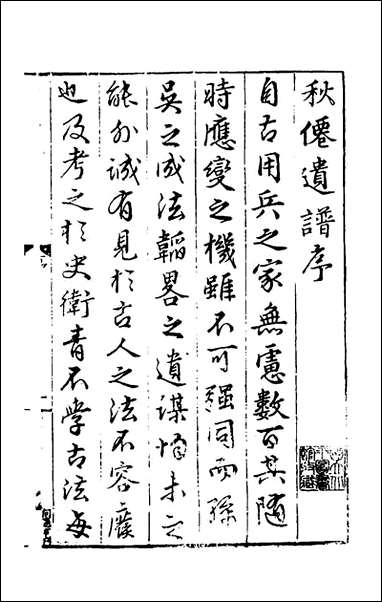 秋僊遺譜序
自古用兵之家無慮數百其隨
時應變之機雖不可強同而孫
吳之成法韜畧之遺謀情未之
能外誠有見於古人之法不容廢
也及考之於史衛青不學古法每